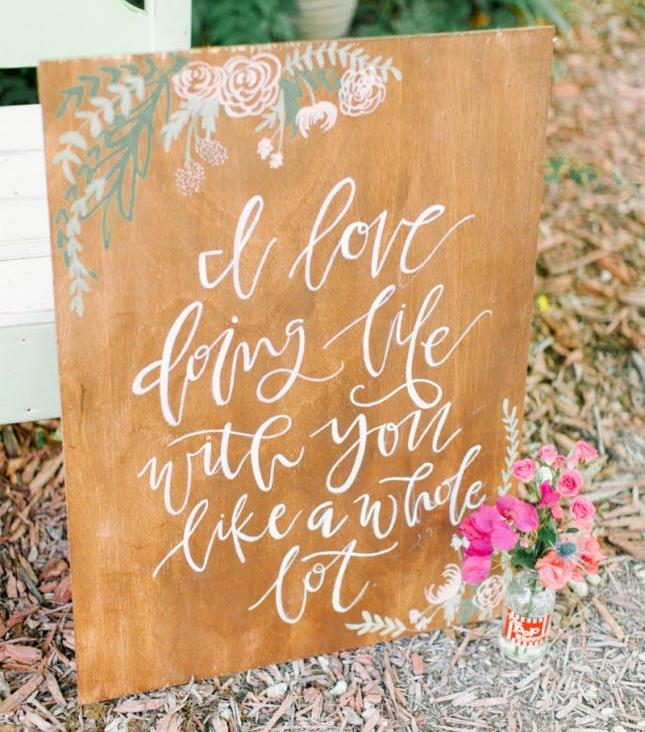 I love
doing life
with you
like a whole
lot.
POP